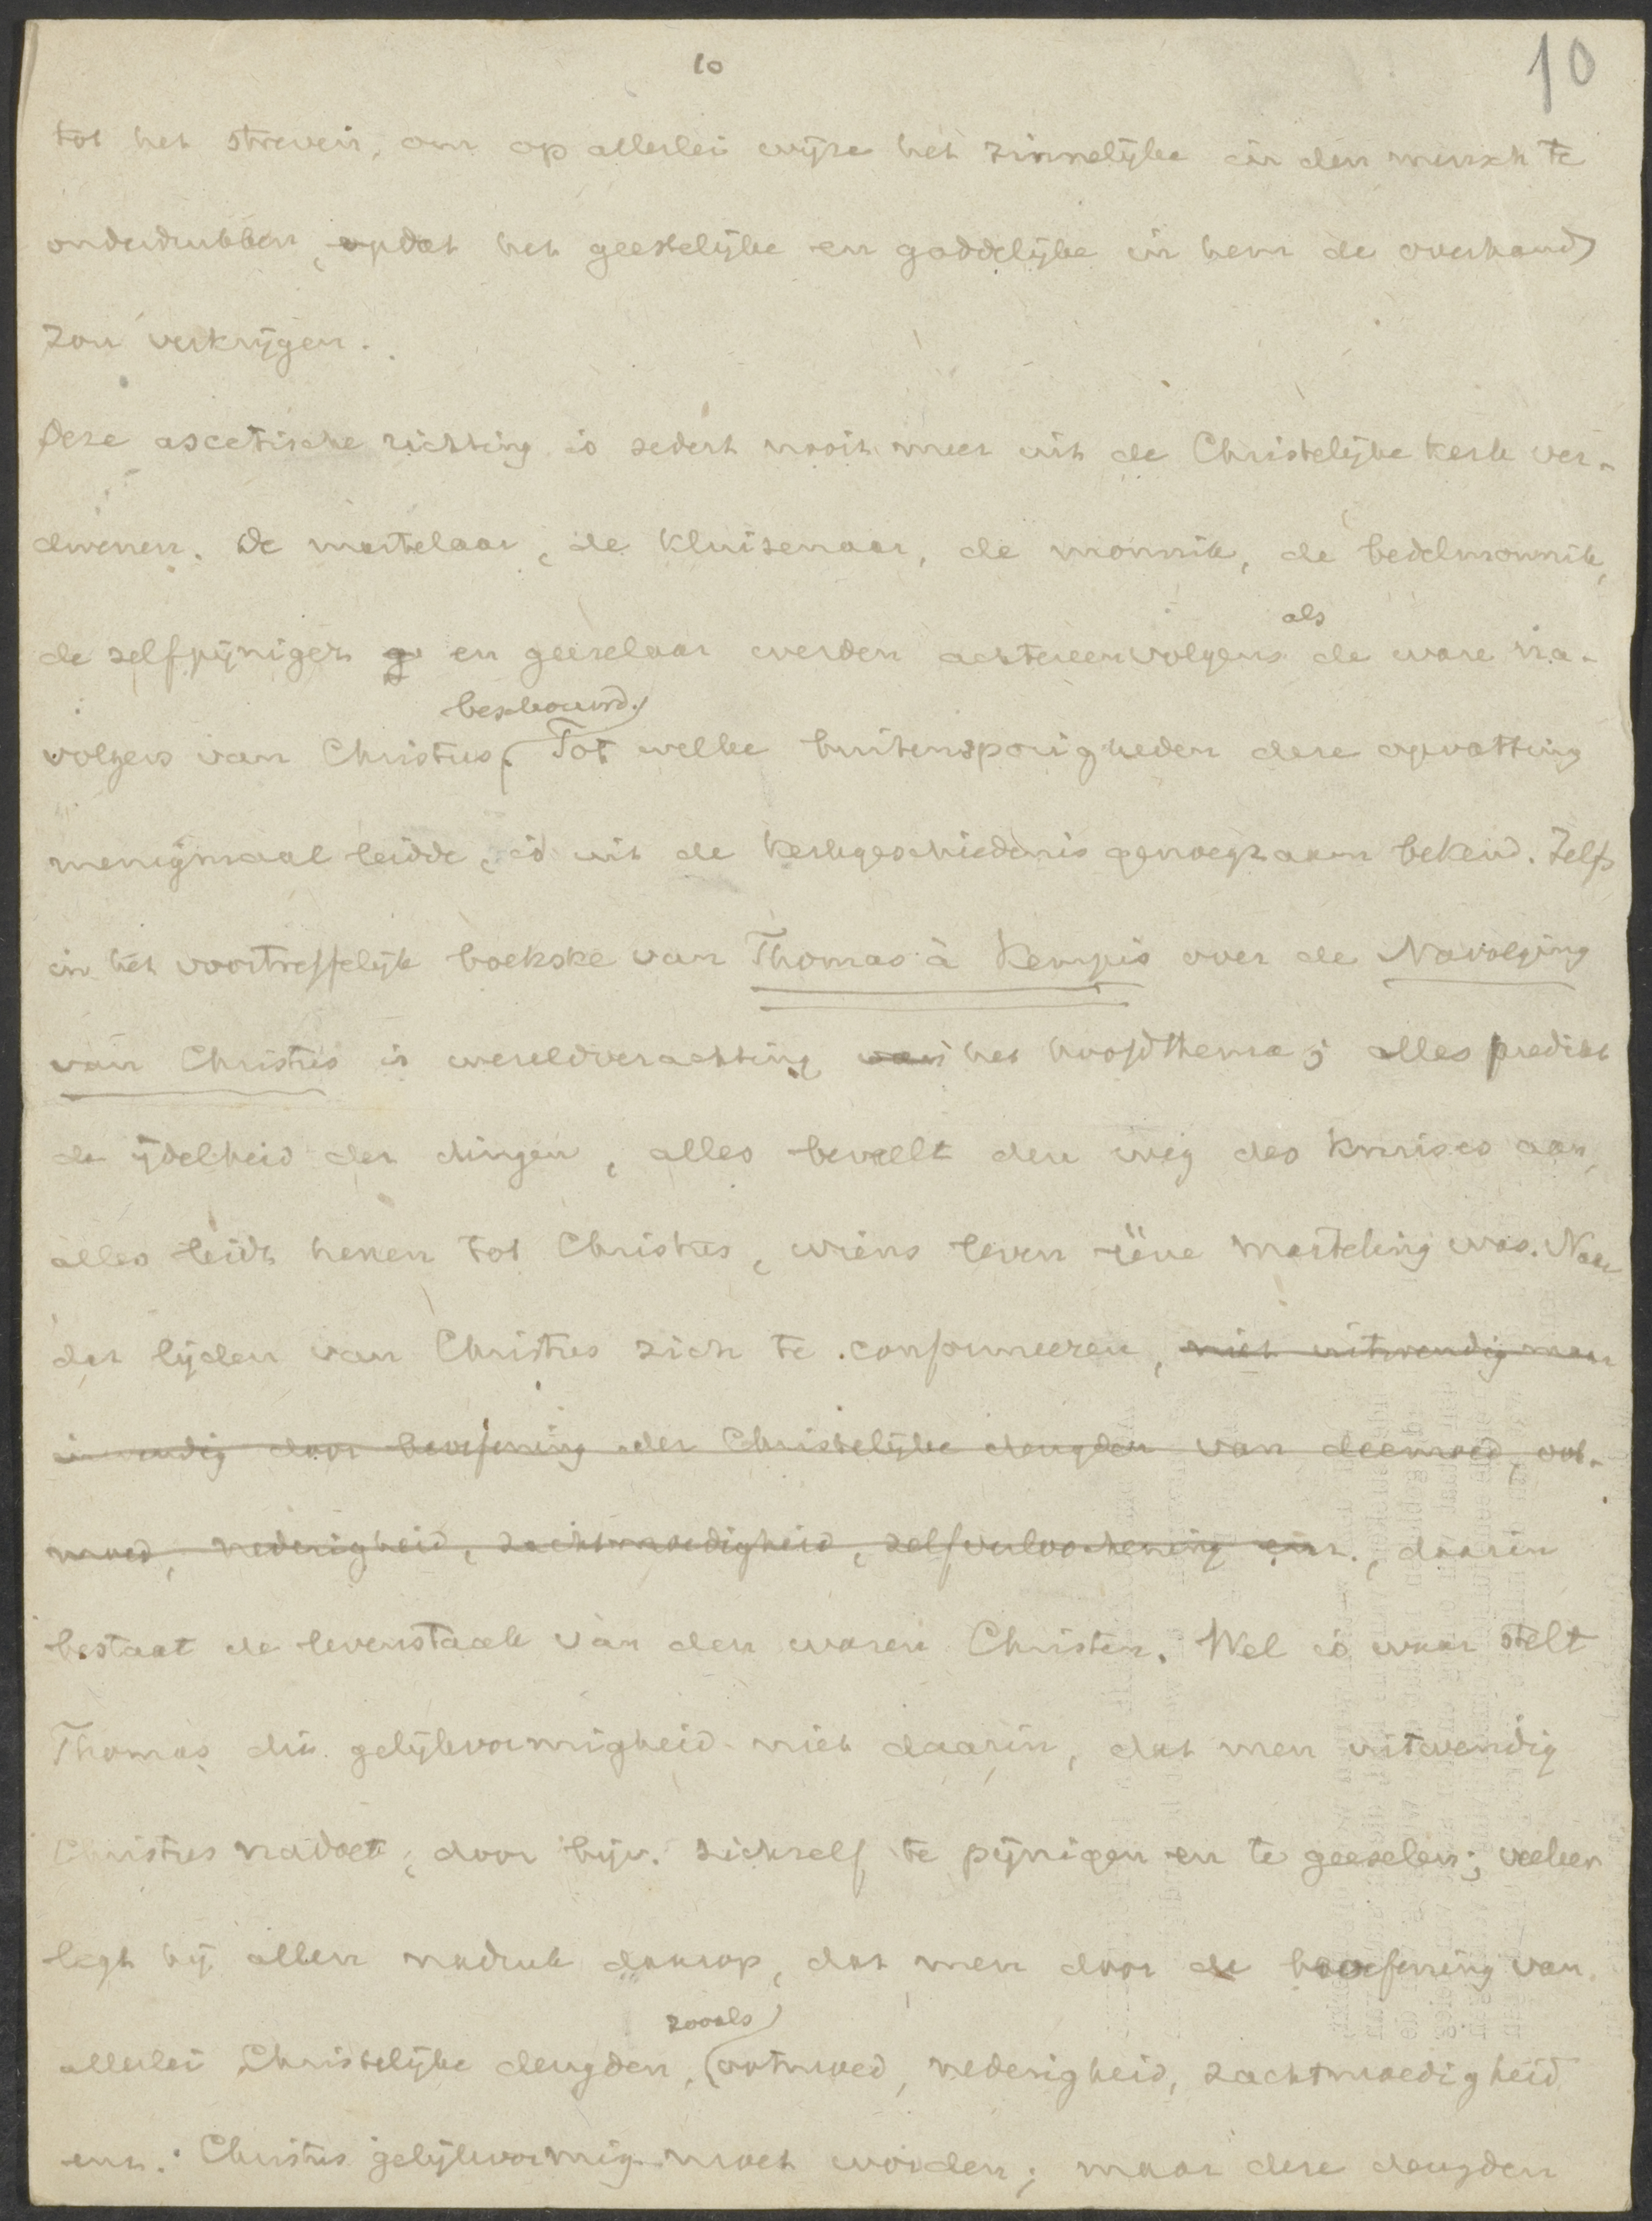 10
10
tot het streven, om op allerlei wijze het zinnelijke in den mensch te
onderdrukken, opdat het geestelijke en goddelijke in hem de overhand
zou verkrijgen.
Deze ascetische richting is sedert nooit meer uit de Christelijke kerk ver-
dwenen. De martelaar, de kluizenaar, de monnik, de bedelmonnik,
als
de zelfpijniger g en geeselaar werden achtereenvolgens de ware na-
beschouwd.
volgers van Christus. Tot welke buitensporigheden deze opvatting
menigmaal leidde, is uit de kerkgeschiedenis genoegzaam bekend. Zelfs
in het voortreffelijk boekske van Thomas à Kempis over de Navolging
van Christus is wereldverachting van het hoofdthema; alles predikt
de ijdelheid der dingen, alles beveelt den weg des kruises aan,
alles leidt henen tot Christus, wiens leven ééne marteling was. Naar
dat lijden van Christus zich te conformeeren, niet uitwendig maar
inwendig door beoefening der Christelijke deugden van deemoed, oot-
moed, nederigheid, zachtmoedigheid, zelfverloochening enz., daarin
bestaat de levenstaak van den waren Christen. Wel is waar stelt
Thomas die gelijkvormigheid niet daarin, dat men uitwendig
Christus nadoet, door bijv. zichzelf te pijnigen en te geeselen; veeleer
legt hij allen nadruk daarop, dat men door de beoefening van
zooals
allerlei Christelijke deugden, ootmoed, nederigheid, zachtmoedigheid
enz. Christus gelijkvormig moet worden; maar deze deugden